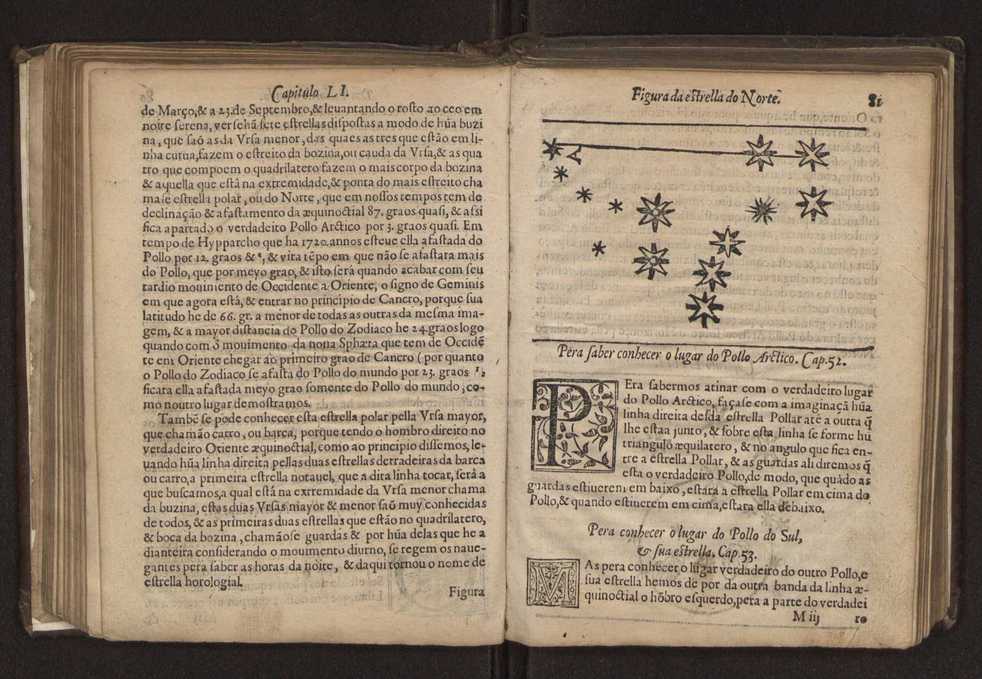 Capitulo LI.
de Março,& a 23.de Septembro,& leuantando o rosto ao ceo em
noite serena, verseha sete estrellas dispostas a modo de hũa buzi
na, que saõ as da Vrsa menor, das quaes as tres que estão em li-
nha curua,fazem o estreito da bozina,ou cauda da Vrsa,& as qua
tro que compoem o quadrilatero fazem o mais corpo da bozina
& aquella que está na extremidade,& ponta do mais estreito cha
mase estrella polar, ou do Norte, que em nossos tempos tem de
declinação & afastamento da æquinoctial 87. graos quasi, & assi
fica apartado o verdadeiro Pollo Arctico por 3. graos quasi. Em
tempo de Hypparcho que ha 1720.annos esteue ella afastada do
Pollo por 12. graos & , & vira tẽpo em que não se afastara mais
do Pollo, que por meyo grao, & isto será quando acabar com seu
tardio mouimento de Occidente a Oriente, o signo de Geminis
em que agora está, & entrar no principio de Cancro, porque sua
latitudo he de 66. gr. a menor de todas as outras da mesma ima-
gem, & a mayor distancia do Pollo do Zodiaco he 24.graos logo
quando com õ mouimento da nona Sphæra que tem de Occidẽ
te em Oriente chegar ao primeiro grao de Cancro (por quanto
o Pollo do Zodiaco se afasta do Pollo do mundo por 23. graos ½
ficara ella afastada meyo grao somente do Pollo do mundo, co-
mo noutro lugar demostramos.
Tambẽ se pode conhecer esta estrella polar pella Vrsa mayor,
que chamão carro, ou barca, porque tendo o hombro direito no
verdadeiro Oriente æquinoctial, como ao principio dissemos, le-
uando hũa linha direita pellas duas estrellas derradeiras da barca
ou carro,a primeira estrella notauel, que a dita linha tocar, será a
que buscamos,a qual está na extremidade da Vrsa menor chama
da buzina, estas duas Vrsas mayor & menor saõ muy conhecidas
de todos, & as primeiras duas estrellas que estão no quadrilatero,
& boca da bozina, chamãose guardas & por hũa delas que he a
dianteira considerando o mouimento diurno, se regem os naue-
gantes pera saber as horas da noite, & daqui tornou o nome de
estrella horologial.
Figura
Figura da estrella do Norte.
81
A
Pera saber conhecer o lugar do Pollo Arctico. Cap.52.
PEra sabermos atinar com o verdadeiro lugar
do Pollo Arctico, façase com a imaginaçã hũa
linha direita desda estrella Pollar até a outra q̃
lhe estaa junto, & sobre esta linha se forme hũ
triangulo æquilatero, & no angulo que fica en-
tre a estrella Pollar, & as guardas ali diremos q̃
esta o verdadeiro Pollo,de modo, que quãdo as
guardas estiuerem em baixo, estara a estrella Pollar em cima do
Pollo,& quando estiuerem em cima,estara ella debaixo.
Pera conhecer o lugar do Pollo do Sul,
& sua estrella. Cap.53.
MAs pera conhecer o lugar verdadeiro do outro Pollo,e
sua estrella hemos de por da outra banda da linha æ-
quinoctial o hõbro esquerdo,pera a parte do verdadei
M iij
ro